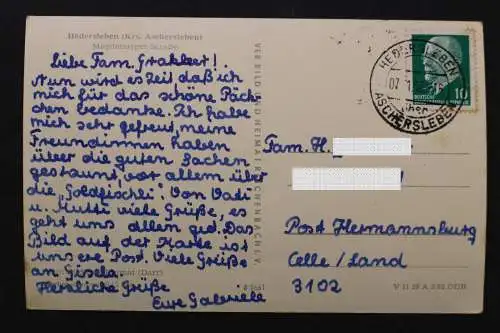 Hedersleben (Krs. Aschersleben)
Magdeburger Straße
Liebe Fam. Grakleer!
Nun wird es Zeit daß ich
mich für das schöne Päck-
chen bedanke. Ich habe
mich sehr gefreut, meine
Freundinnen haben
über die guten Sachen
gestaunt, vor allem über
die „Goldfischli". Von Vati
u. Mutti viele Grüße, es
geht uns allen gut. Das
Bild auf der Marke ist
unsere Post. Viele Grüße
an Gisela.
Herzliche Grüße
Eure Gabriele
VER BILD UND HEIMAT REICHENBACH I. V.
HEDERSLEBEN
über
ASCHERSLEBEN
10
Fam. H.
Post Hermannsburg
Celle/Land
3102
(Darr)
V 11 28 A 2,50 DDR